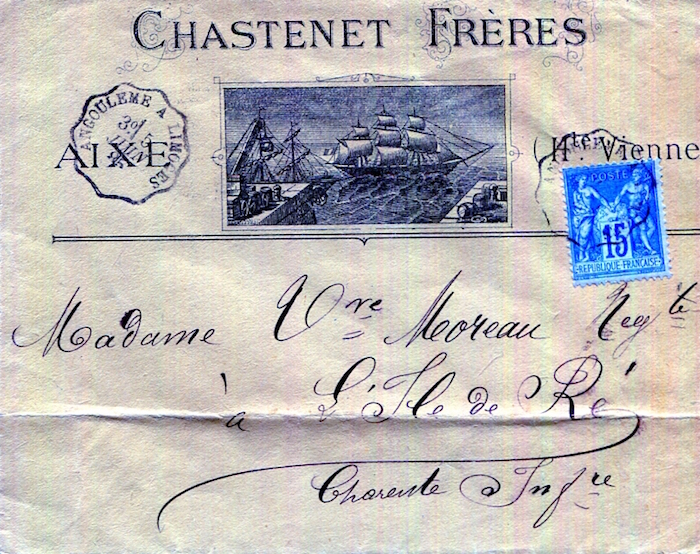 CHASTENET FRÈRES
AIXE
(Hte Vienne
ANGOULEME A LIMOGES
30
JUIN
POSTE
15
REPUBLIQUE FRANÇAISE
Madame Vve Moreau Negte
à L'Ile de Ré
Charente Infre